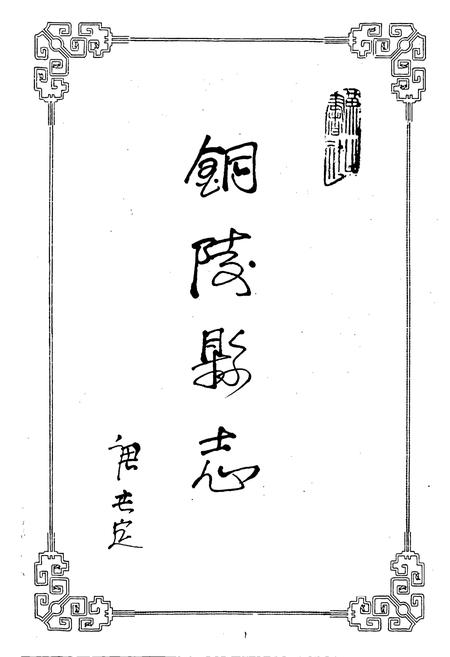 銅陵縣志
唐世定